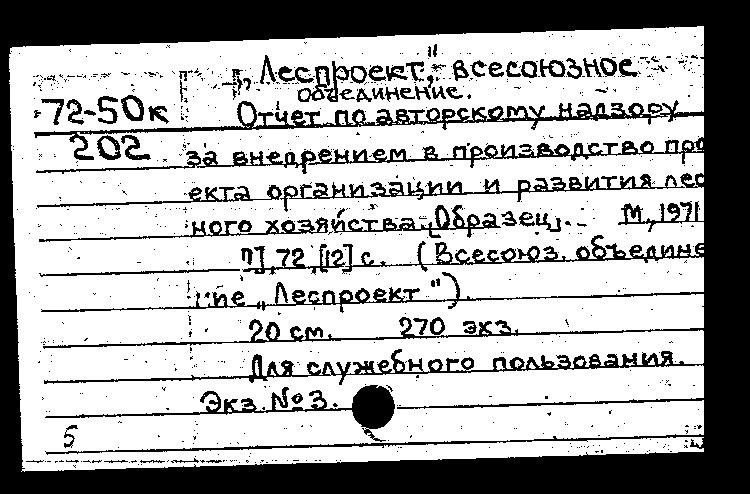 „Леспроект", всесоюзное
объединение.
72-50к Отчет по авторскому надзору
202 за внедрением в производство про
екта организации и развития лес
ного хозяйства. [Образец]. М., 1971
72, [12] с. (Всесоюз. объедине
ние „Леспроект").
20 см. 270 экз.
Для служебного пользования.
Экз. №3.
5